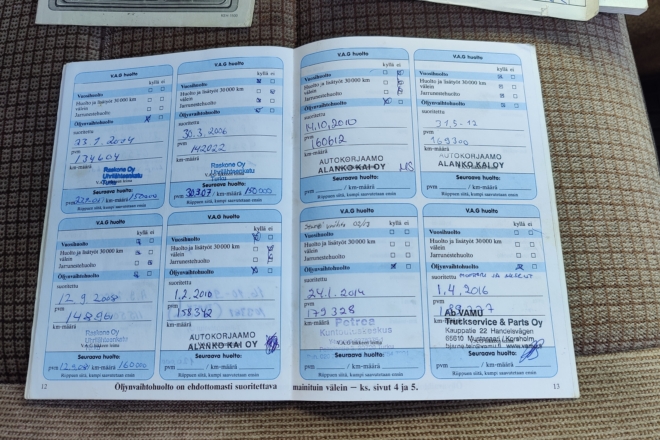 V.A.G huolto
kyllä ei
Vuosihuolto
Huolto ja lisätyöt 30 000 km välein
Jarrunestehuolto
Öljynvaihtohuolto
suoritettu
23.7.2004
pvm
134604
km-määrä
Raskone Oy
Turku
V.A.G liikkeen leima
Seuraava huolto:
pvm / km-määrä 150000
Riippuen siitä, kumpi saavutetaan ensin
V.A.G huolto
kyllä ei
Vuosihuolto
Huolto ja lisätyöt 30 000 km
välein
Jarrunestehuolto
Öljynvaihtohuolto
suoritettu
30.3.2006
pvm
142022
km-määrä
Raskone Oy
Turku
Seuraava huolto:
pvm 30.3.07 / km-määrä 150 000
Riippuen siitä, kumpi saavutetaan ensin
V.A.G huolto
kyllä ei
Vuosihuolto
Huolto ja lisätyöt 30 000 km
välein
Jarrunestehuolto
Öljynvaihtohuolto
suoritettu
12.9.2008
pvm
148961
km-määrä
Raskone Oy
V.A.G liikkeen leima
Seuraava huolto:
pvm / km-määrä 160000
Riippuen siitä, kumpi saavutetaan ensin
V.A.G huolto
kyllä ei
Vuosihuolto
Huolto ja lisätyöt 30 000 km
välein
Jarrunestehuolto
Öljynvaihtohuolto
suoritettu
1.2.2010
pvm
158342
km-määrä
AUTOKORJAAMO
ALANKO KAI OY
Seuraava huolto:
pvm / km-määrä
Riippuen siitä, kumpi saavutetaan ensin
12
Öljynvaihtohuolto on ehdottomasti suoritettava
V.A.G huolto
kyllä ei
Vuosihuolto
Huolto ja lisätyöt 30 000 km
välein
Jarrunestehuolto
Öljynvaihtohuolto
suoritettu
14.10.2010
pvm
160612
km-määrä
AUTOKORJAAMO
ALANKO KAI OY
Seuraava huolto:
pvm / km-määrä
Riippuen siitä, kumpi saavutetaan ensin
V.A.G huolto
kyllä ei
Vuosihuolto
Huolto ja lisätyöt 30 000 km
välein
Jarrunestehuolto
Öljynvaihtohuolto
suoritettu
31.5-12
pvm
169300
km-määrä
AUTOKORJAAMO
ALANKO KAI OY
Seuraava huolto:
pvm / km-määrä
Riippuen siitä, kumpi saavutetaan ensin
V.A.G huolto
kyllä ei
Vuosihuolto
Huolto ja lisätyöt 30 000 km
välein
Jarrunestehuolto
Öljynvaihtohuolto
suoritettu
24.1.2014
pvm
179328
km-määrä
Petree
V.A.G liikkeen leima
Seuraava huolto:
pvm / km-määrä
Riippuen siitä, kumpi saavutetaan ensin
V.A.G huolto
kyllä ei
Vuosihuolto
Huolto ja lisätyöt 30 000 km
välein
Jarrunestehuolto
Öljynvaihtohuolto
suoritettu
1.4.2016
pvm
Ab VAMU
Truckservice & Parts Oy
Kauppatie 22 Handelsvägen
65610 Mustasaari / Korsholm
Seuraava huolto:
pvm / km-määrä
Riippuen siitä, kumpi saavutetaan ensin
mainituin välein — ks. sivut 4 ja 5.
13